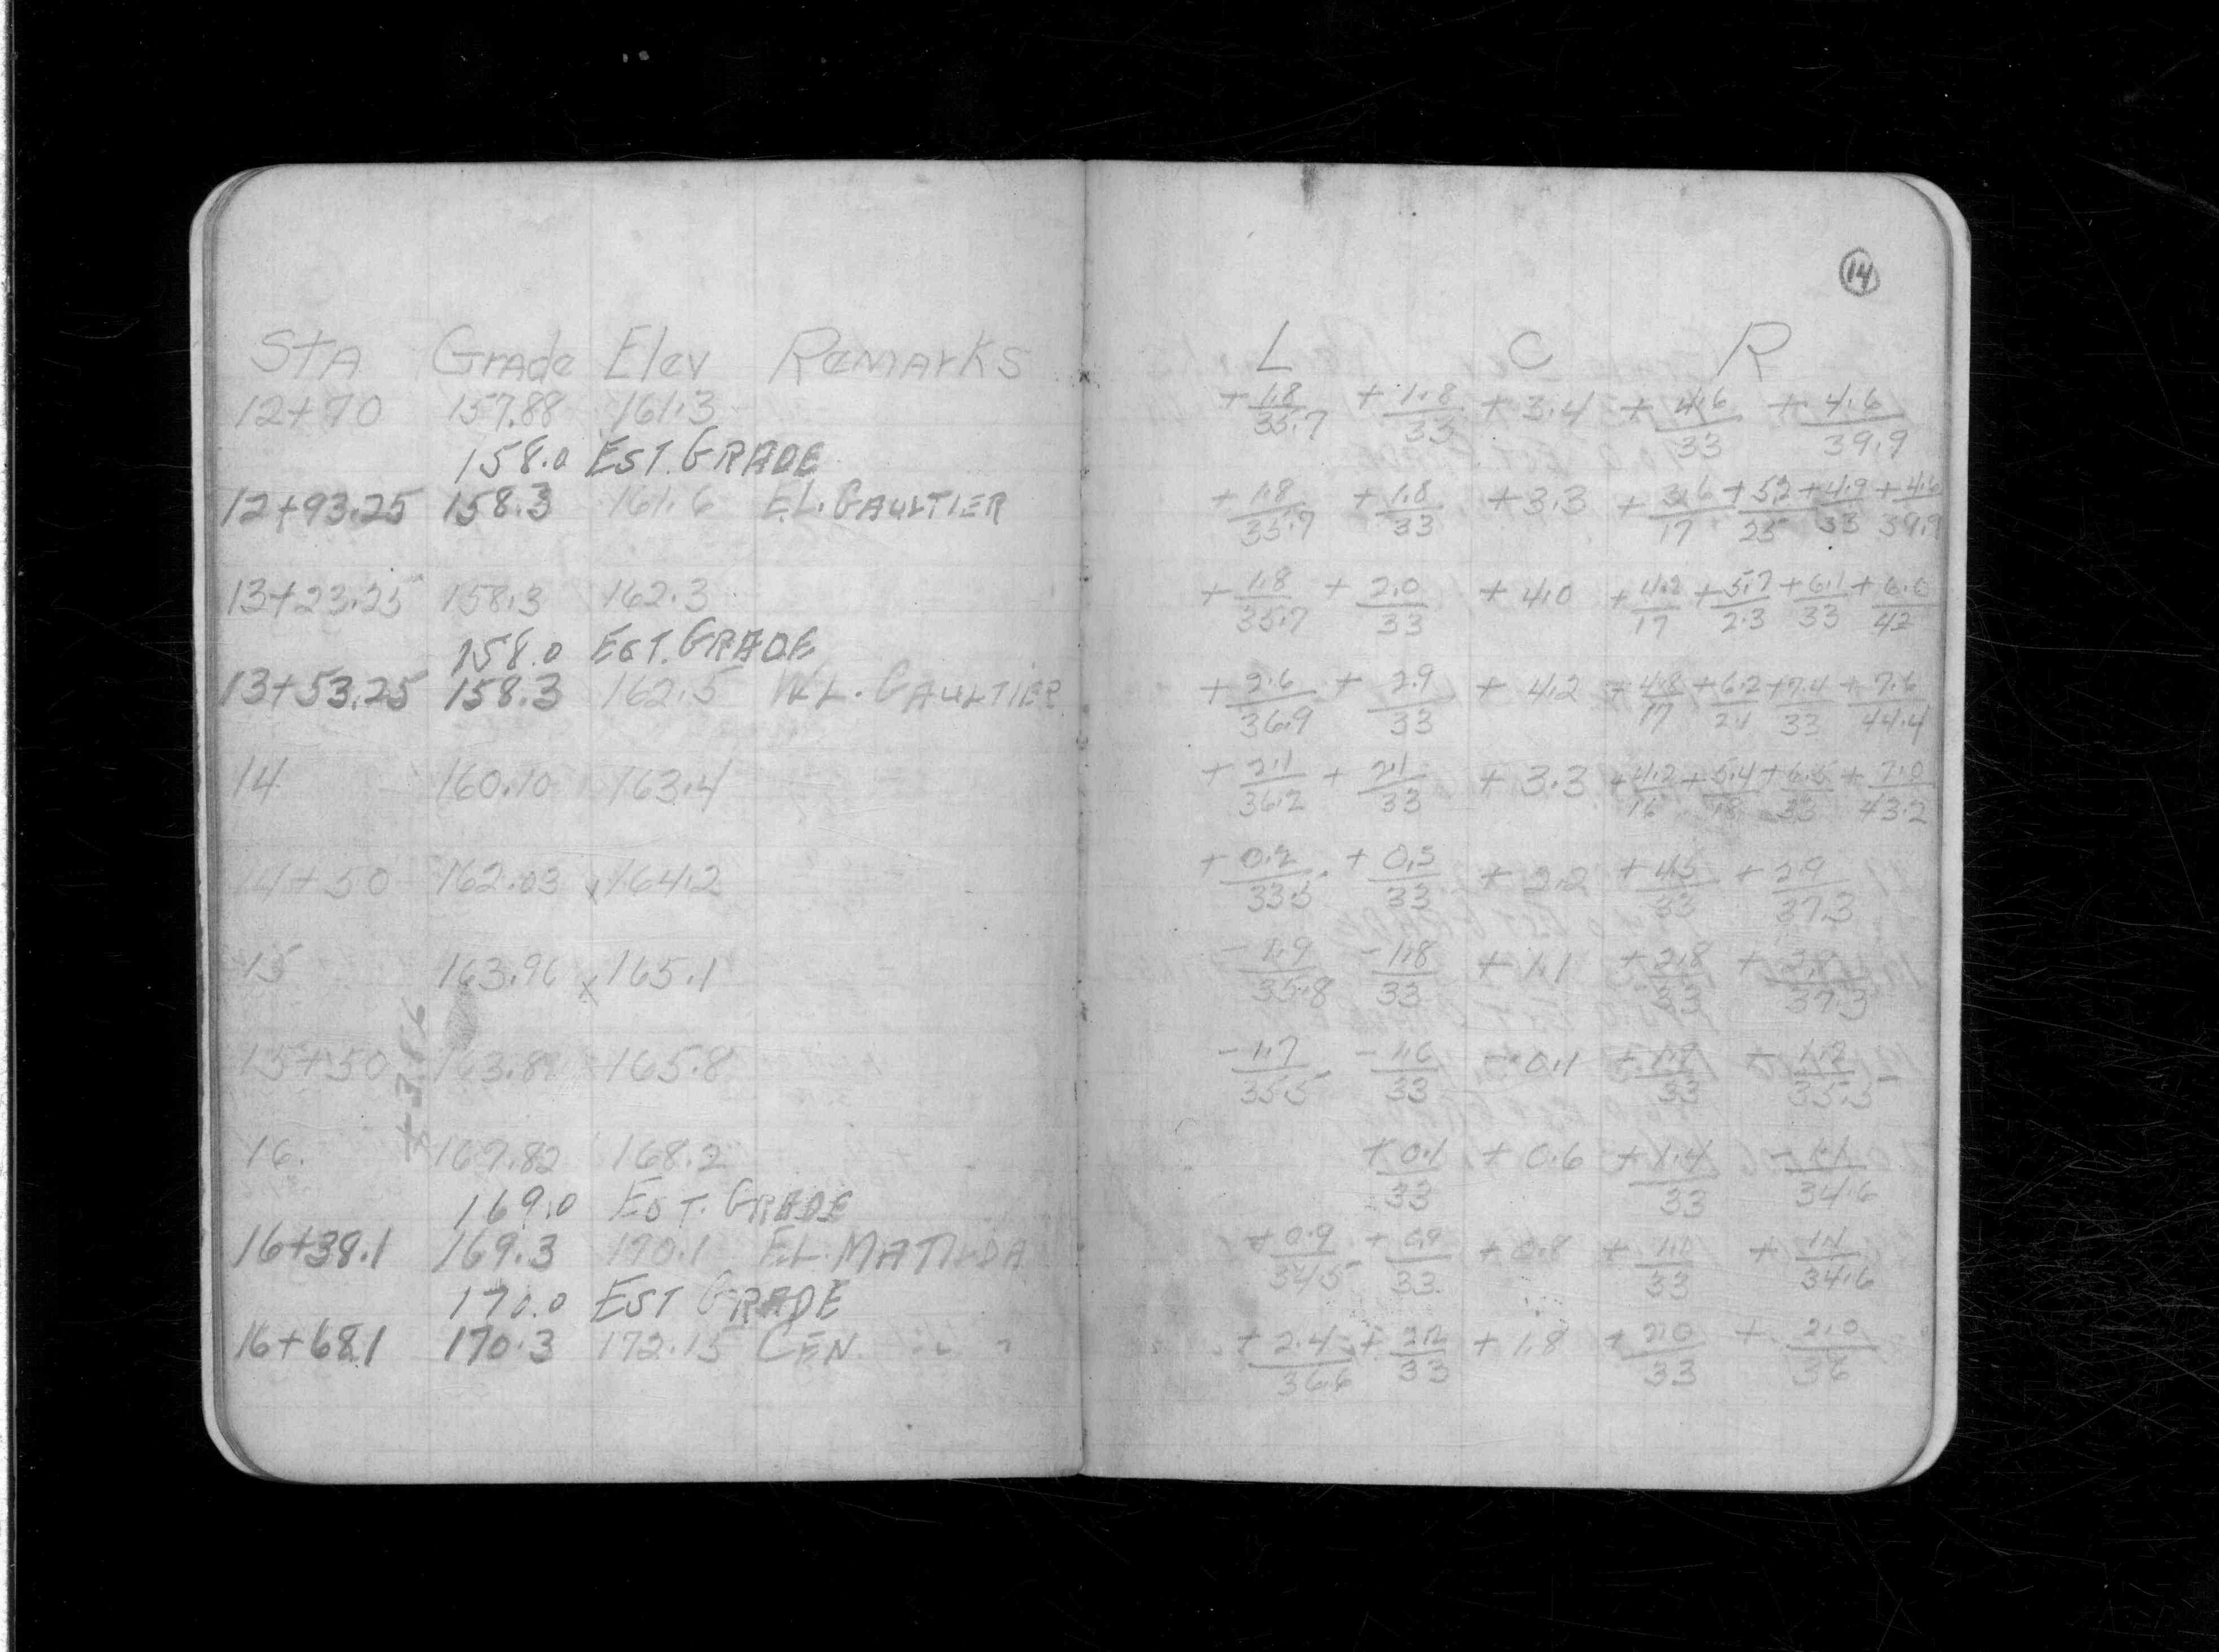 14
STA Grade Elev Remarks
12+70 157.88 161.3
158.0 EST. GRADE
12+93.25 158.3 161.6 E.L. GAULTIER
13+23.25 158.3 162.3
158.0 EST. GRADE
13+53.25 158.3 162.5 W.L. GAULTIER
14 160.10 163.4
14+50 162.03 x 164.2
15 163.96 x 165.1
15+50 165.8
+3.86
16. 167.82 168.2
169.0 EST. GRADE
16+38.1 169.3 170.1 EL. MATILDA
170.0 EST GRADE
16+68.1 170.3 172.15 CEN. " "
L C R
+1.8/35.7 +1.8/33 +3.4 +4.6/33 +4.6/39.9
+1.8/35.7 +1.8/33 +3.3 +3.6/17 +5.2/25 +4.9/33 +4.6/39.9
+1.8/35.7 +2.0/33 +4.0 +4.2/17 +5.7/23 +6.1/33 +6.0/42
+2.6/36.9 +2.9/33 +4.2 +4.8/17 +6.2/21 +7.4/33 +7.6/44.4
+2.1/36.2 +2.1/33 +3.3 +4.2/16 +5.4/18 +6.5/33 +7.0/43.2
+0.2/33.3 +0.5/33 +2.2 +4.5/33 +2.9/37.3
-1.9/35.8 -1.8/33 +1.1 +2.8/33 /37.3
-1.7/35.5 -1.6/33 -0.1 +1.7/33 1.7/35.5
+0.1/33 +0.6 +1.4/33 -1.1/34.6
+0.9/34.5 +0.9/33 +0.8 +1.1/33 +1.1/34.6
+2.4/36.6 +2.2/33 +1.8 +2.0/33 +2.0/36